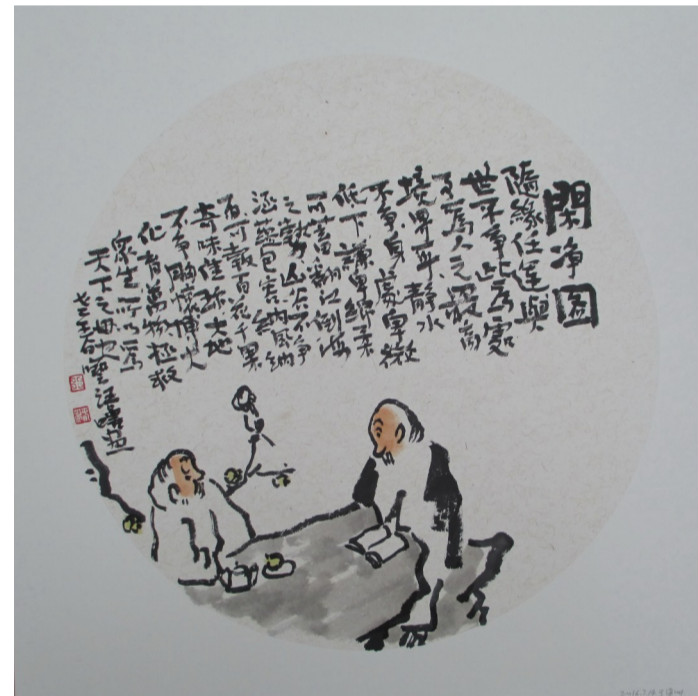 閑净圖
隨緣任運與
世不争此為處
為人之最高
境界 静水
不争身處卑微
低下謙卑綿柔
可蓄翻江倒海
之勢山谷不争
涵蕴包容 風纳
雨可 百花千果
奇味佳 大地
不争胸懷博大
化育萬物拯救
衆生所以為
天下之母也